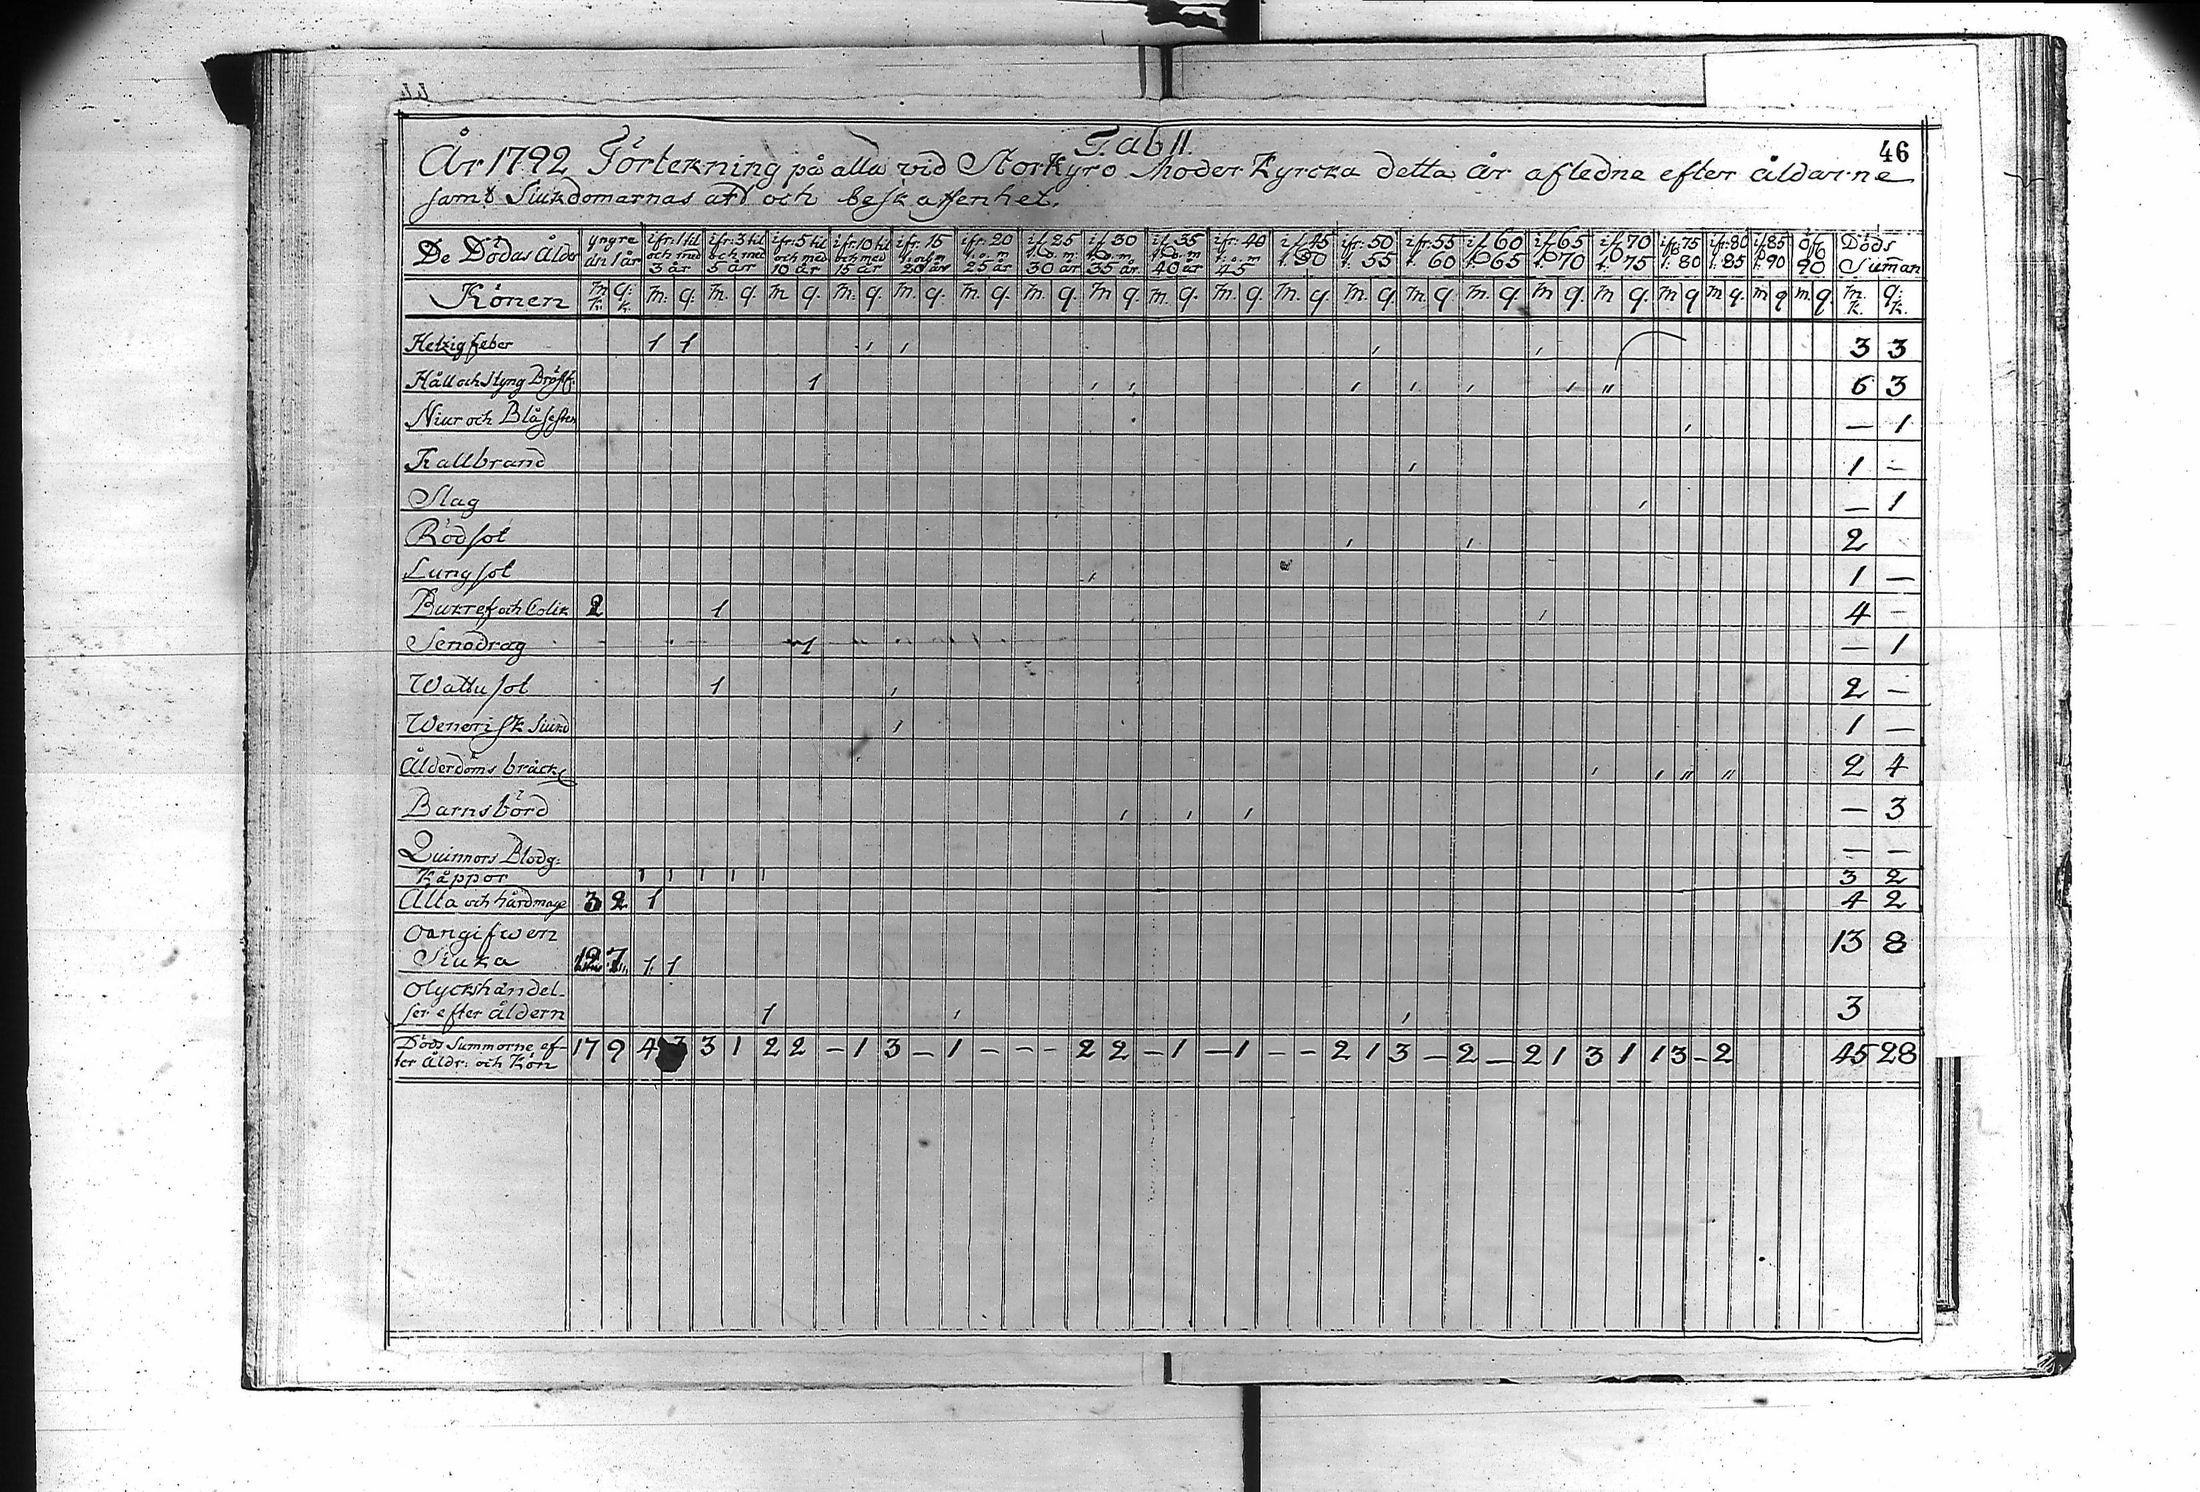 Tab II.
46
År 1792 Förtekning på alla vid Storkyro Moder Kyrcka detta år afledne efter åldarne
samt Siukdomarnas art och beskaffenhet.
De Dödas Ålder yngre än 1 år ifr: 1 til och med 3 år ifr: 3 til och med 5 år ifr: 5 til och med 10 år ifr: 10 til och med 15 år ifr: 15 t. och m 20 år ifr: 20 t. o. m 25 år if 25 t. o. m. 30 år if 30 t. o. m 35 år if 35 t. o. m 40 år ifr: 40 t. o. m 45 if 45 t. 50 ifr: 50 t. 55 ifr: 55 t. 60 if 60 t. 65 if 65 t. 70 if 70 t. 75 ifr: 75 t. 80 ifr: 80 t. 85 if 85 t. 90 öfv 90 Döds Summan
Könen m. k. q. k. m. q. m. q. m q. m. q. m. q. m. q. m. q. m q. m. q. m. q. m. q. m. q m. q m. q. m q. m q. m q m q. m q m. q m. k. q. k.
Hetzig feber 1 1 1 1 1 1 3 3
Håll och Styng Bröstf: 1 1 1 1 1 1 1 " 6 3
Niur och Blåsesten 1 — 1
Kallbrand 1 1 —
Slag 1 — 1
Rödsot 1 1 2
Lungsot 1 1 —
Bukref och Colik 2 1 1 4 —
Senodrag 1 — 1
Wattusot 1 1 2 —
Wenerisk Siukd 1 1 —
Ålderdoms bräck 1 1 " " 2 4
Barnsbörd 1 1 1 — 3
Quinnors Blodg: — —
Kåppor 1 1 1 1 1 3 2
Älta och hårdmage 3 2 1 4 2
Oangifwen
Siuka 12 7 1 1 13 8
Olyckshändel-
ser efter åldern 1 1 1 3
Döds Summorne ef-
ter Åldr: och Kön 17 9 4 3 3 1 2 2 — 1 3 — 1 — — — 2 2 — 1 — 1 — — 2 1 3 — 2 — 2 1 3 1 1 3 — 2 45 28